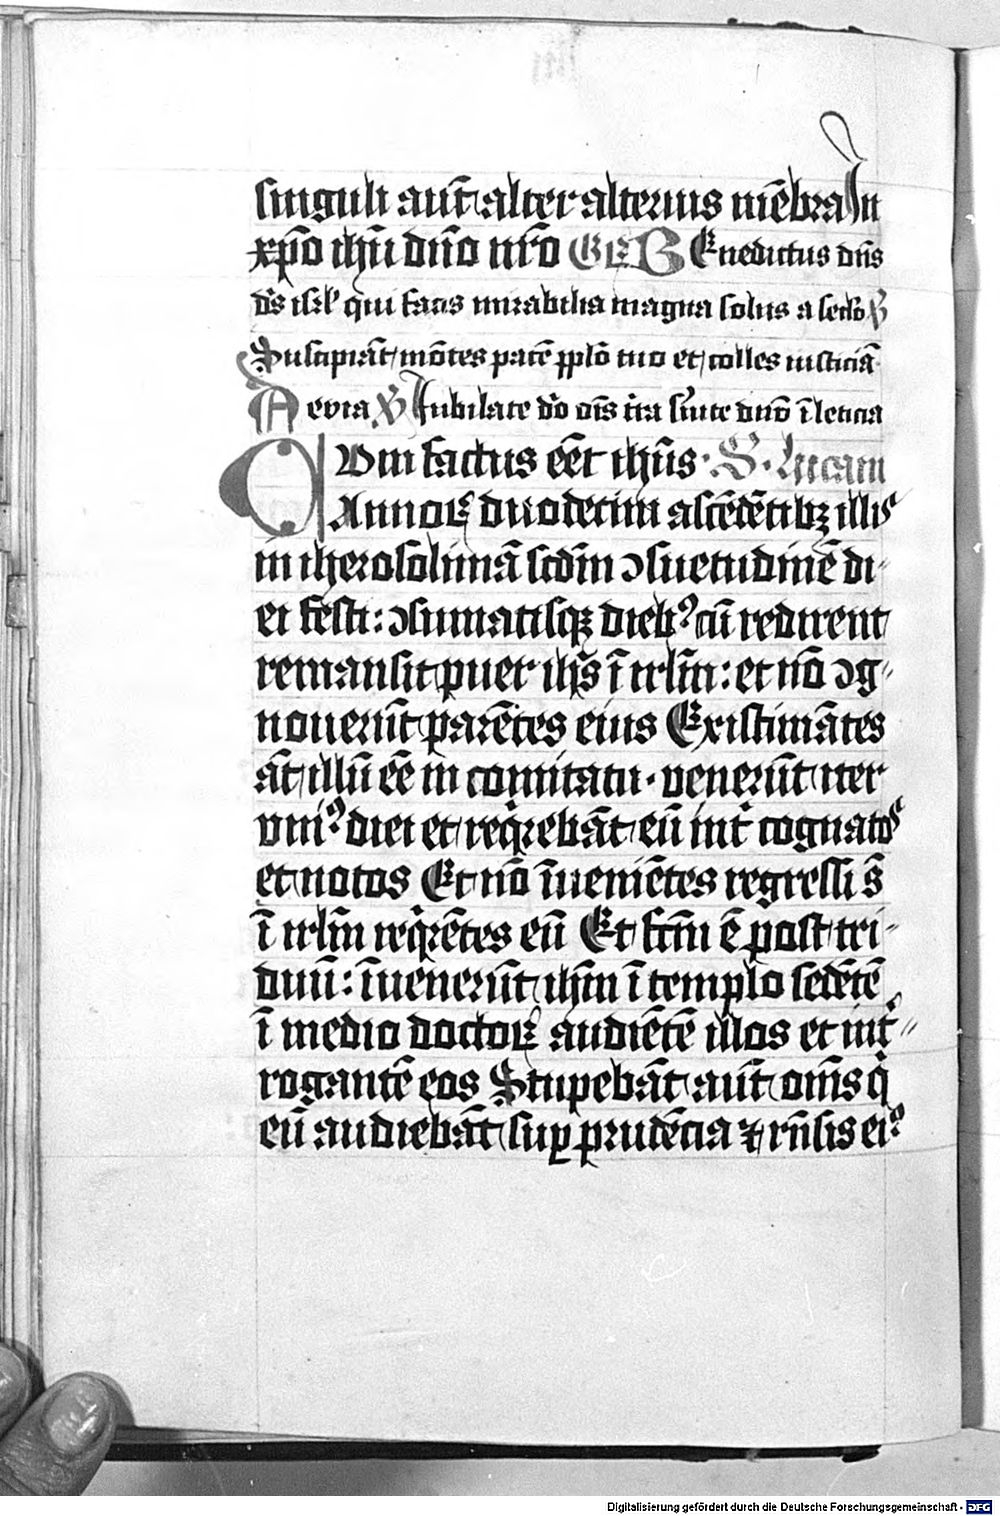 singuli aut̄ alter alterius mēbra In
xp̄o ihū dn̄o nr̄o GR B Enedictus dn̄s
d̄s isrl' qui facis mirabilia magna solus a seclo V
Suscipiāt mōtes pacē pplō tuo et colles iusticiā
Aevia V Jubilate dō oīs t̄ra s̄uite dn̄o ī leticia
CVm factus eēt ihūs · S · Lucam
Annoꝝ duodecim ascēdētibꝫ illis
in iherosolimā scdm̄ ↄsuetudinē di
ei festi: ↄsumatisqꝫ dieb⁹ cū redirent
remansit puer ihs̄ ī irlm̄: et nō ↄg
noverūt parētes eius Existimātes
āt illū eē in comitatu · venerūt iter
vni⁹ diei et req̇rebāt eū int̄ cognatos
et notos Et nō īuenietēs regressi s̄
ī irlm̄ req̇rētes eū Et fcm̄ ē post tri
duū: īuenerūt ihm̄ ī templo sedētē
ī medio doctoꝝ audiētē illos et int̄
rogantē eos Stupebāt aut̄ om̄s q̇
eū audiebāt suꝑ prudēcia ⁊ rn̄sis ei⁹
Digitalisierung gefördert durch die Deutsche Forschungsgemeinschaft - DFG